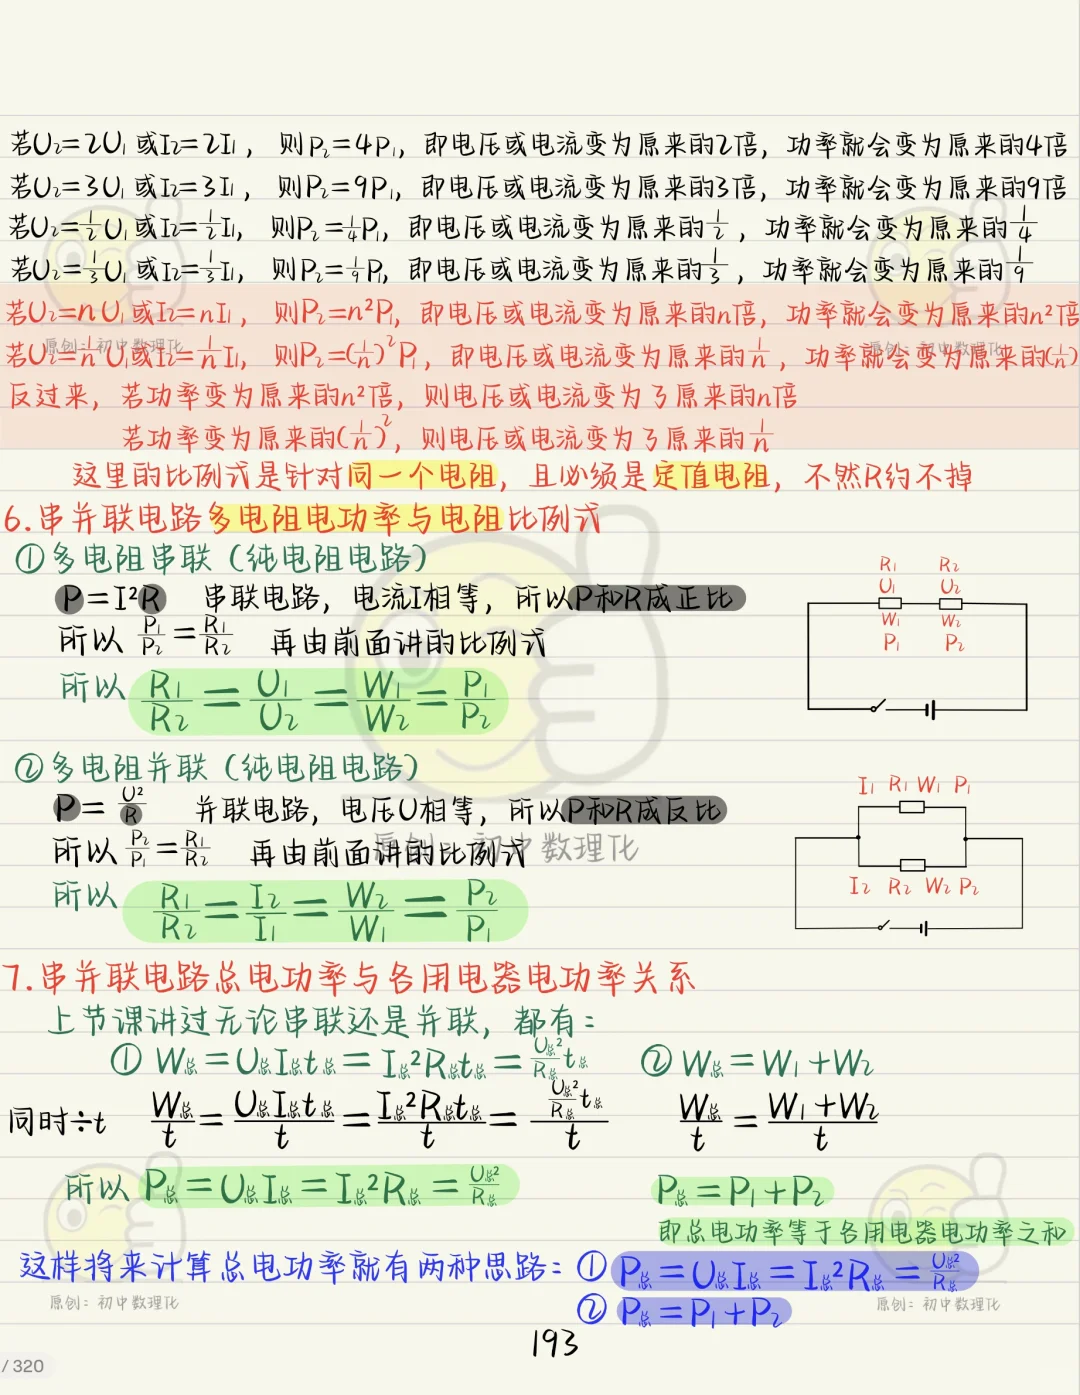 若U₂=2U₁或I₂=2I₁， 则P₂=4P₁，即电压或电流变为原来的2倍，功率就会变为原来的4倍
若U₂=3U₁或I₂=3I₁， 则P₂=9P₁，即电压或电流变为原来的3倍，功率就会变为原来的9倍
若U₂=1/2U₁或I₂=1/2I₁， 则P₂=1/4P₁，即电压或电流变为原来的1/2，功率就会变为原来的1/4
若U₂=1/3U₁或I₂=1/3I₁， 则P₂=1/9P₁，即电压或电流变为原来的1/3，功率就会变为原来的1/9
若U₂=nU₁或I₂=nI₁， 则P₂=n²P₁，即电压或电流变为原来的n倍，功率就会变为原来的n²倍
若U₂=1/nU₁或I₂=1/nI₁， 则P₂=(1/n)²P₁，即电压或电流变为原来的1/n，功率就会变为原来的(1/n)
原创：初中数理化 原创：初中数理化
反过来，若功率变为原来的n²倍，则电压或电流变为了原来的n倍
若功率变为原来的(1/n)²，则电压或电流变为了原来的1/n
这里的比例式是针对同一个电阻，且必须是定值电阻，不然R约不掉
6.串并联电路多电阻电功率与电阻比例式
①多电阻串联（纯电阻电路）
P=I²R 串联电路，电流I相等，所以P和R成正比
所以 P₁/P₂=R₁/R₂ 再由前面讲的比例式
所以 R₁/R₂=U₁/U₂=W₁/W₂=P₁/P₂
R₁ R₂
U₁ U₂
W₁ W₂
P₁ P₂
②多电阻并联（纯电阻电路）
P=U²/R 并联电路，电压U相等，所以P和R成反比
所以 P₂/P₁=R₁/R₂ 再由前面讲的比例式
原创：初中数理化
所以 R₁/R₂=I₂/I₁=W₂/W₁=P₂/P₁
I₁ R₁ W₁ P₁
I₂ R₂ W₂ P₂
7.串并联电路总电功率与各用电器电功率关系
上节课讲过无论串联还是并联，都有：
①W总=U总I总t总=I总²R总t总=U总²/R总t总 ②W总=W₁+W₂
同时÷t W总/t=U总I总t总/t=I总²R总t总/t=U总²/R总t总/t W总/t=W₁+W₂/t
所以 P总=U总I总=I总²R总=U总²/R总 P总=P₁+P₂
即总电功率等于各用电器电功率之和
这样将来计算总电功率就有两种思路：①P总=U总I总=I总²R总=U总²/R总
②P总=P₁+P₂
原创：初中数理化 原创：初中数理化
193
/ 320